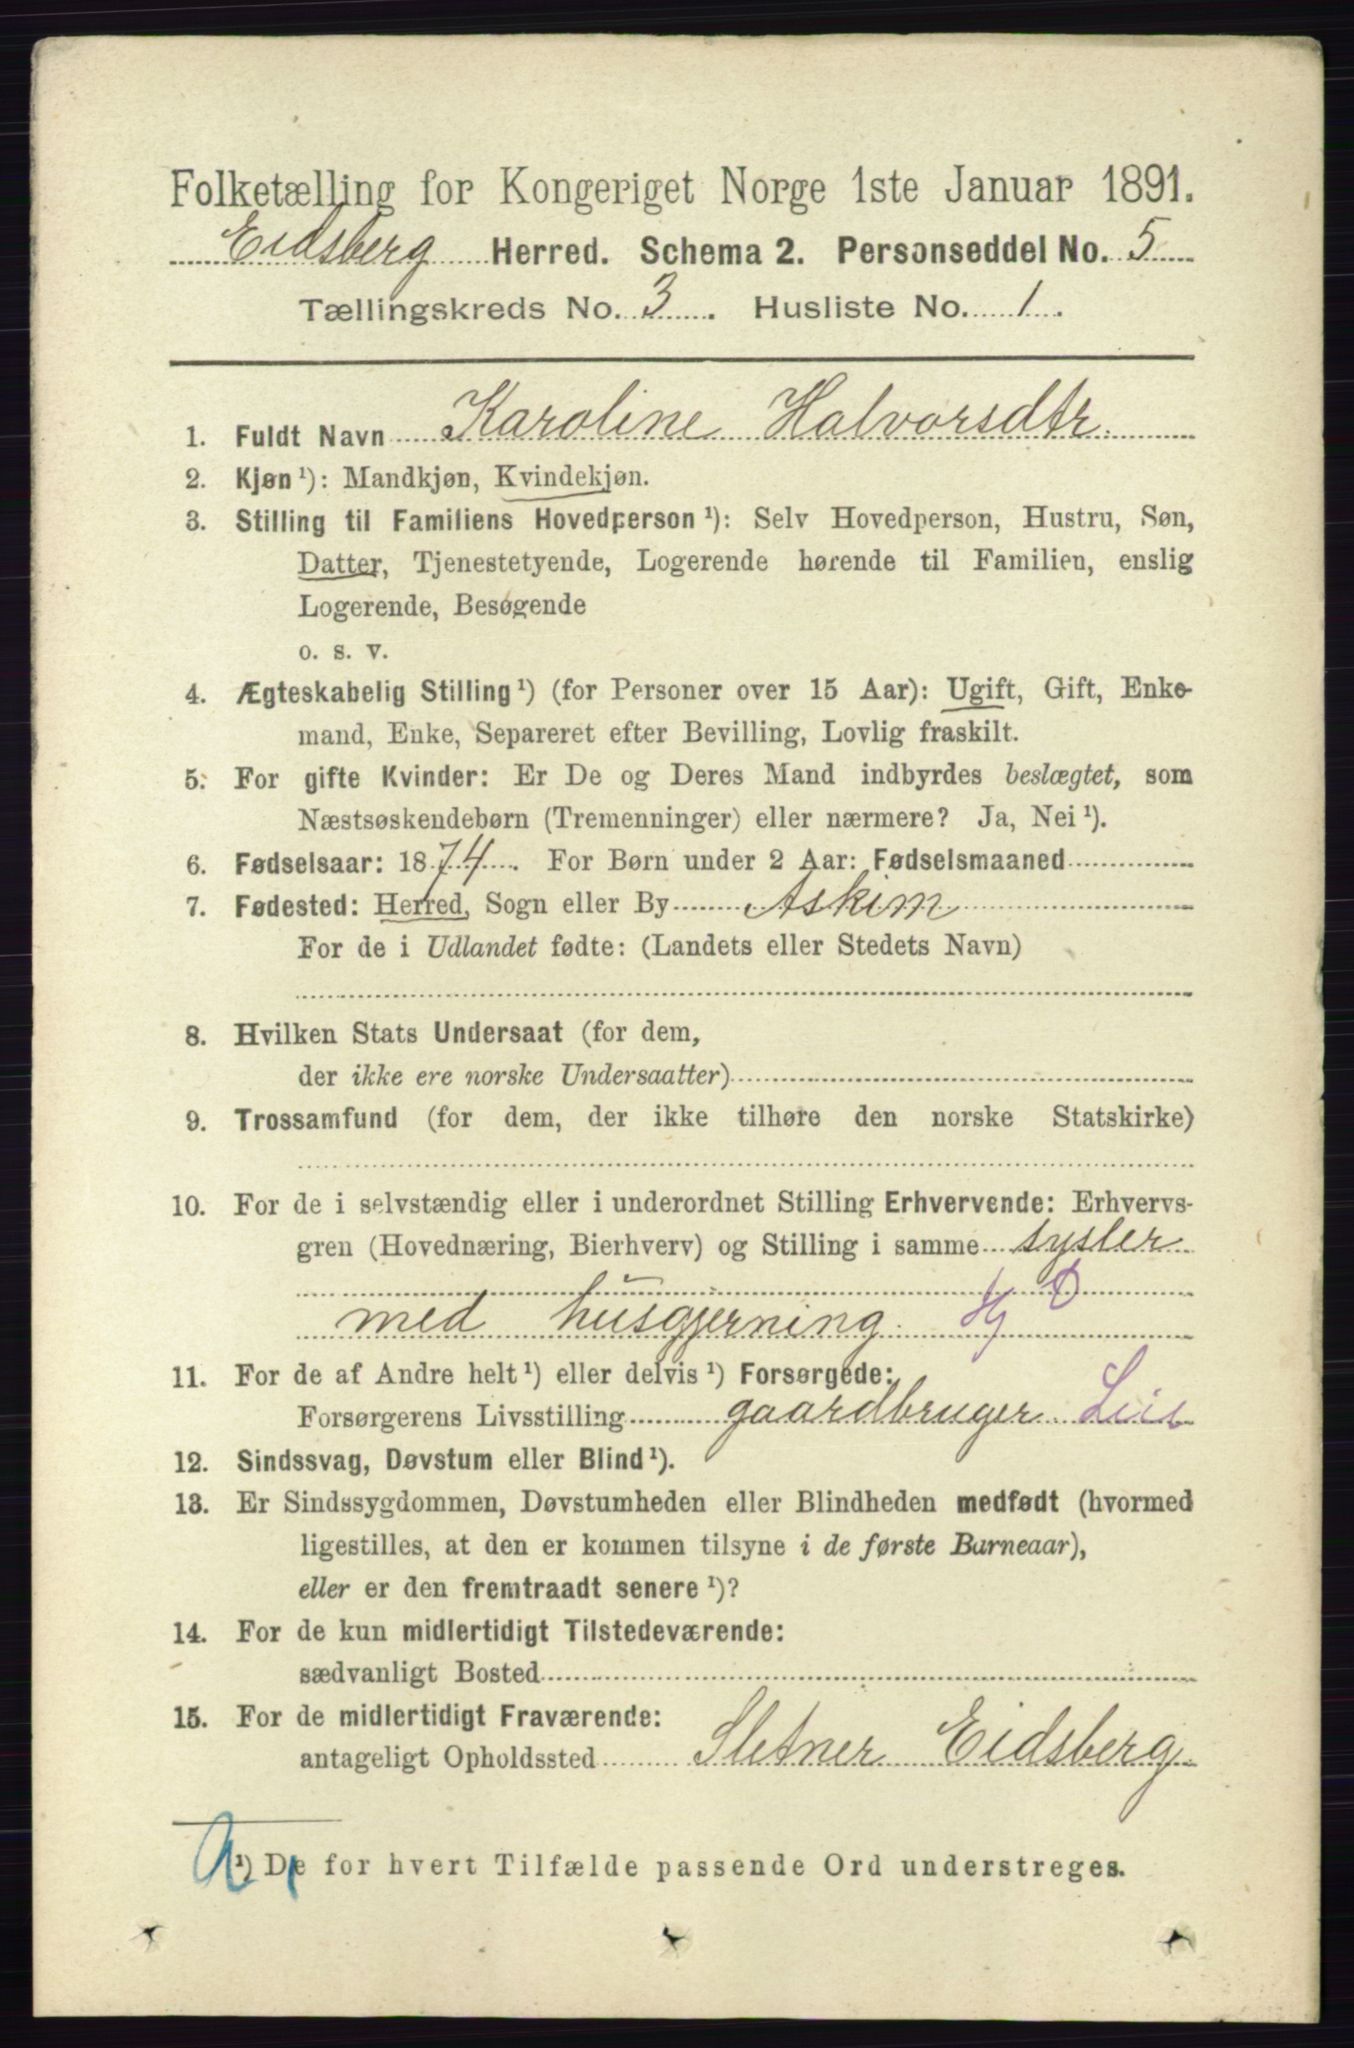 Folketælling for Kongeriget Norge 1ste Januar 1891.
Eidsberg Herred. Schema 2. Personseddel No. 5
Tællingskreds No. 3. Husliste No. 1.
1. Fuldt Navn Karoline Halvorsdtr.
2. Kjøn ¹): Mandkjøn, Kvindekjøn.
3. Stilling til Familiens Hovedperson ¹): Selv Hovedperson, Hustru, Søn,
Datter, Tjenestetyende, Logerende hørende til Familien, enslig
Logerende, Besøgende
o. s. v.
4. Ægteskabelig Stilling ¹) (for Personer over 15 Aar): Ugift, Gift, Enke-
mand, Enke, Separeret efter Bevilling, Lovlig fraskilt.
5. For gifte Kvinder: Er De og Deres Mand indbyrdes beslægtet, som
Næstsøskendebørn (Tremenninger) eller nærmere? Ja, Nei ¹).
6. Fødselsaar: 1874. For Børn under 2 Aar: Fødselsmaaned
7. Fødested: Herred, Sogn eller By Askim
For de i Udlandet fødte: (Landets eller Stedets Navn)
8. Hvilken Stats Undersaat (for dem,
der ikke ere norske Undersaatter)
9. Trossamfund (for dem, der ikke tilhøre den norske Statskirke)
10. For de i selvstændig eller i underordnet Stilling Erhvervende: Erhvervs-
gren (Hovednæring, Bierhverv) og Stilling i samme sysler
med husgjerning.
11. For de af Andre helt ¹) eller delvis ¹) Forsørgede:
Forsørgerens Livsstilling gaardbruger
12. Sindssvag, Døvstum eller Blind ¹).
13. Er Sindssygdommen, Døvstumheden eller Blindheden medfødt (hvormed
ligestilles, at den er kommen tilsyne i de første Barneaar),
eller er den fremtraadt senere ¹)?
14. For de kun midlertidigt Tilstedeværende:
sædvanligt Bosted
15. For de midlertidigt Fraværende:
antageligt Opholdssted Sletner Eidsberg
¹) De for hvert Tilfælde passende Ord understreges.